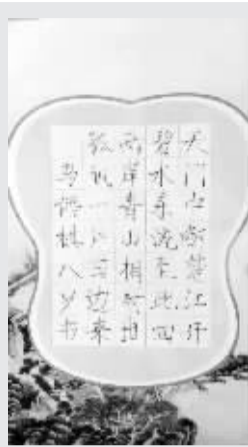 天门中断楚江开
碧水东流至此回
两岸青山相对出
孤帆一片日边来
马语林八岁书